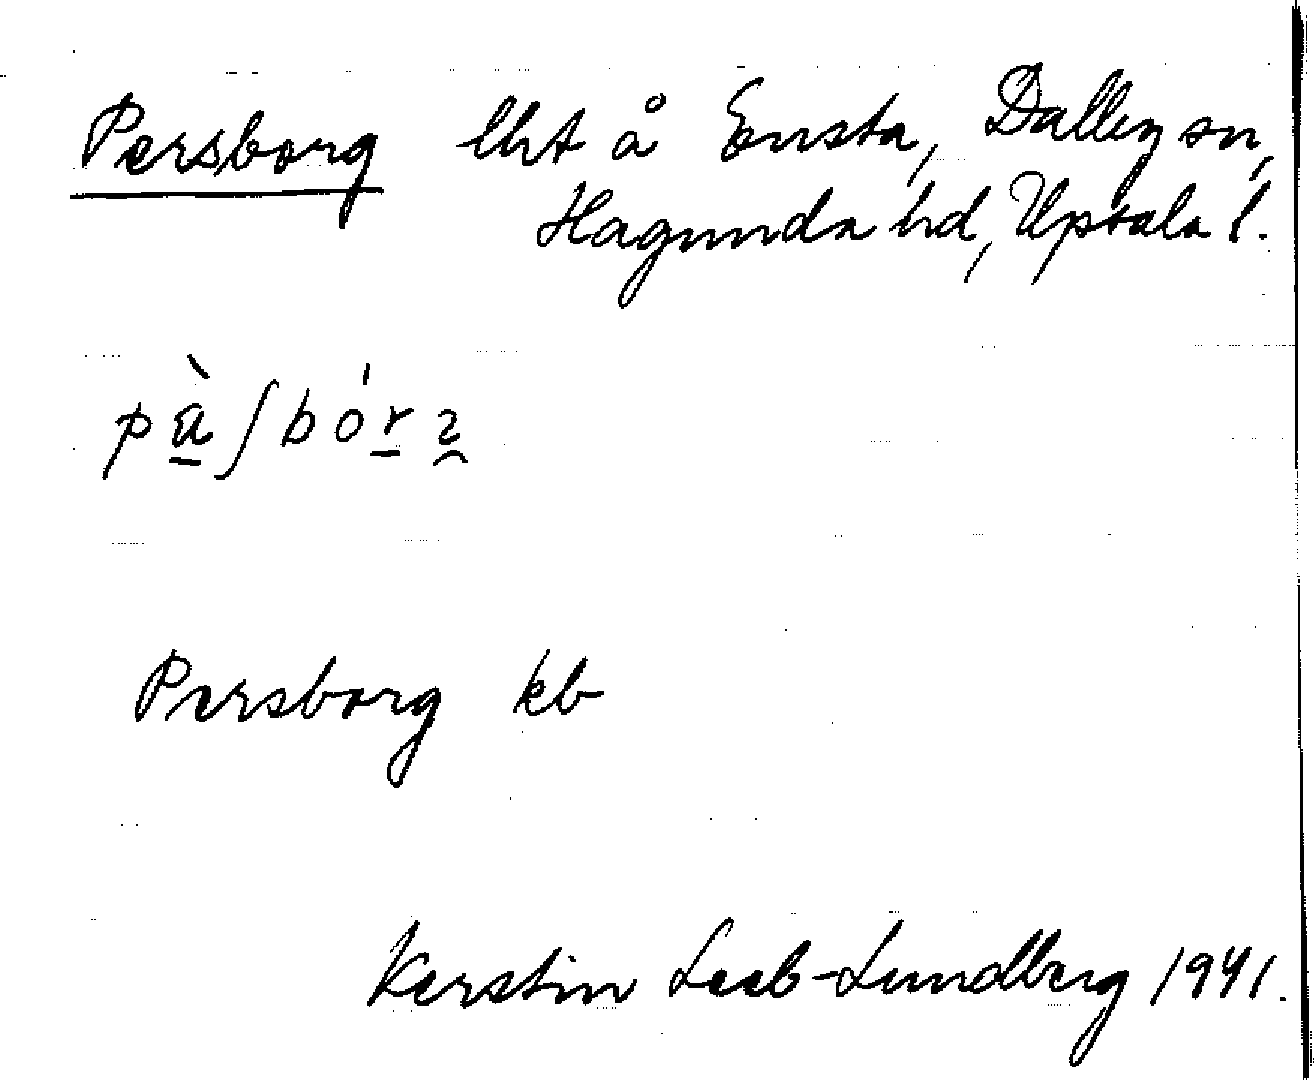 Persborg lht å Ensta, Dalby sn,
Hagunda hd, Upsala l.
Persborg kb
Kerstin Leeb-Lundberg 1941.